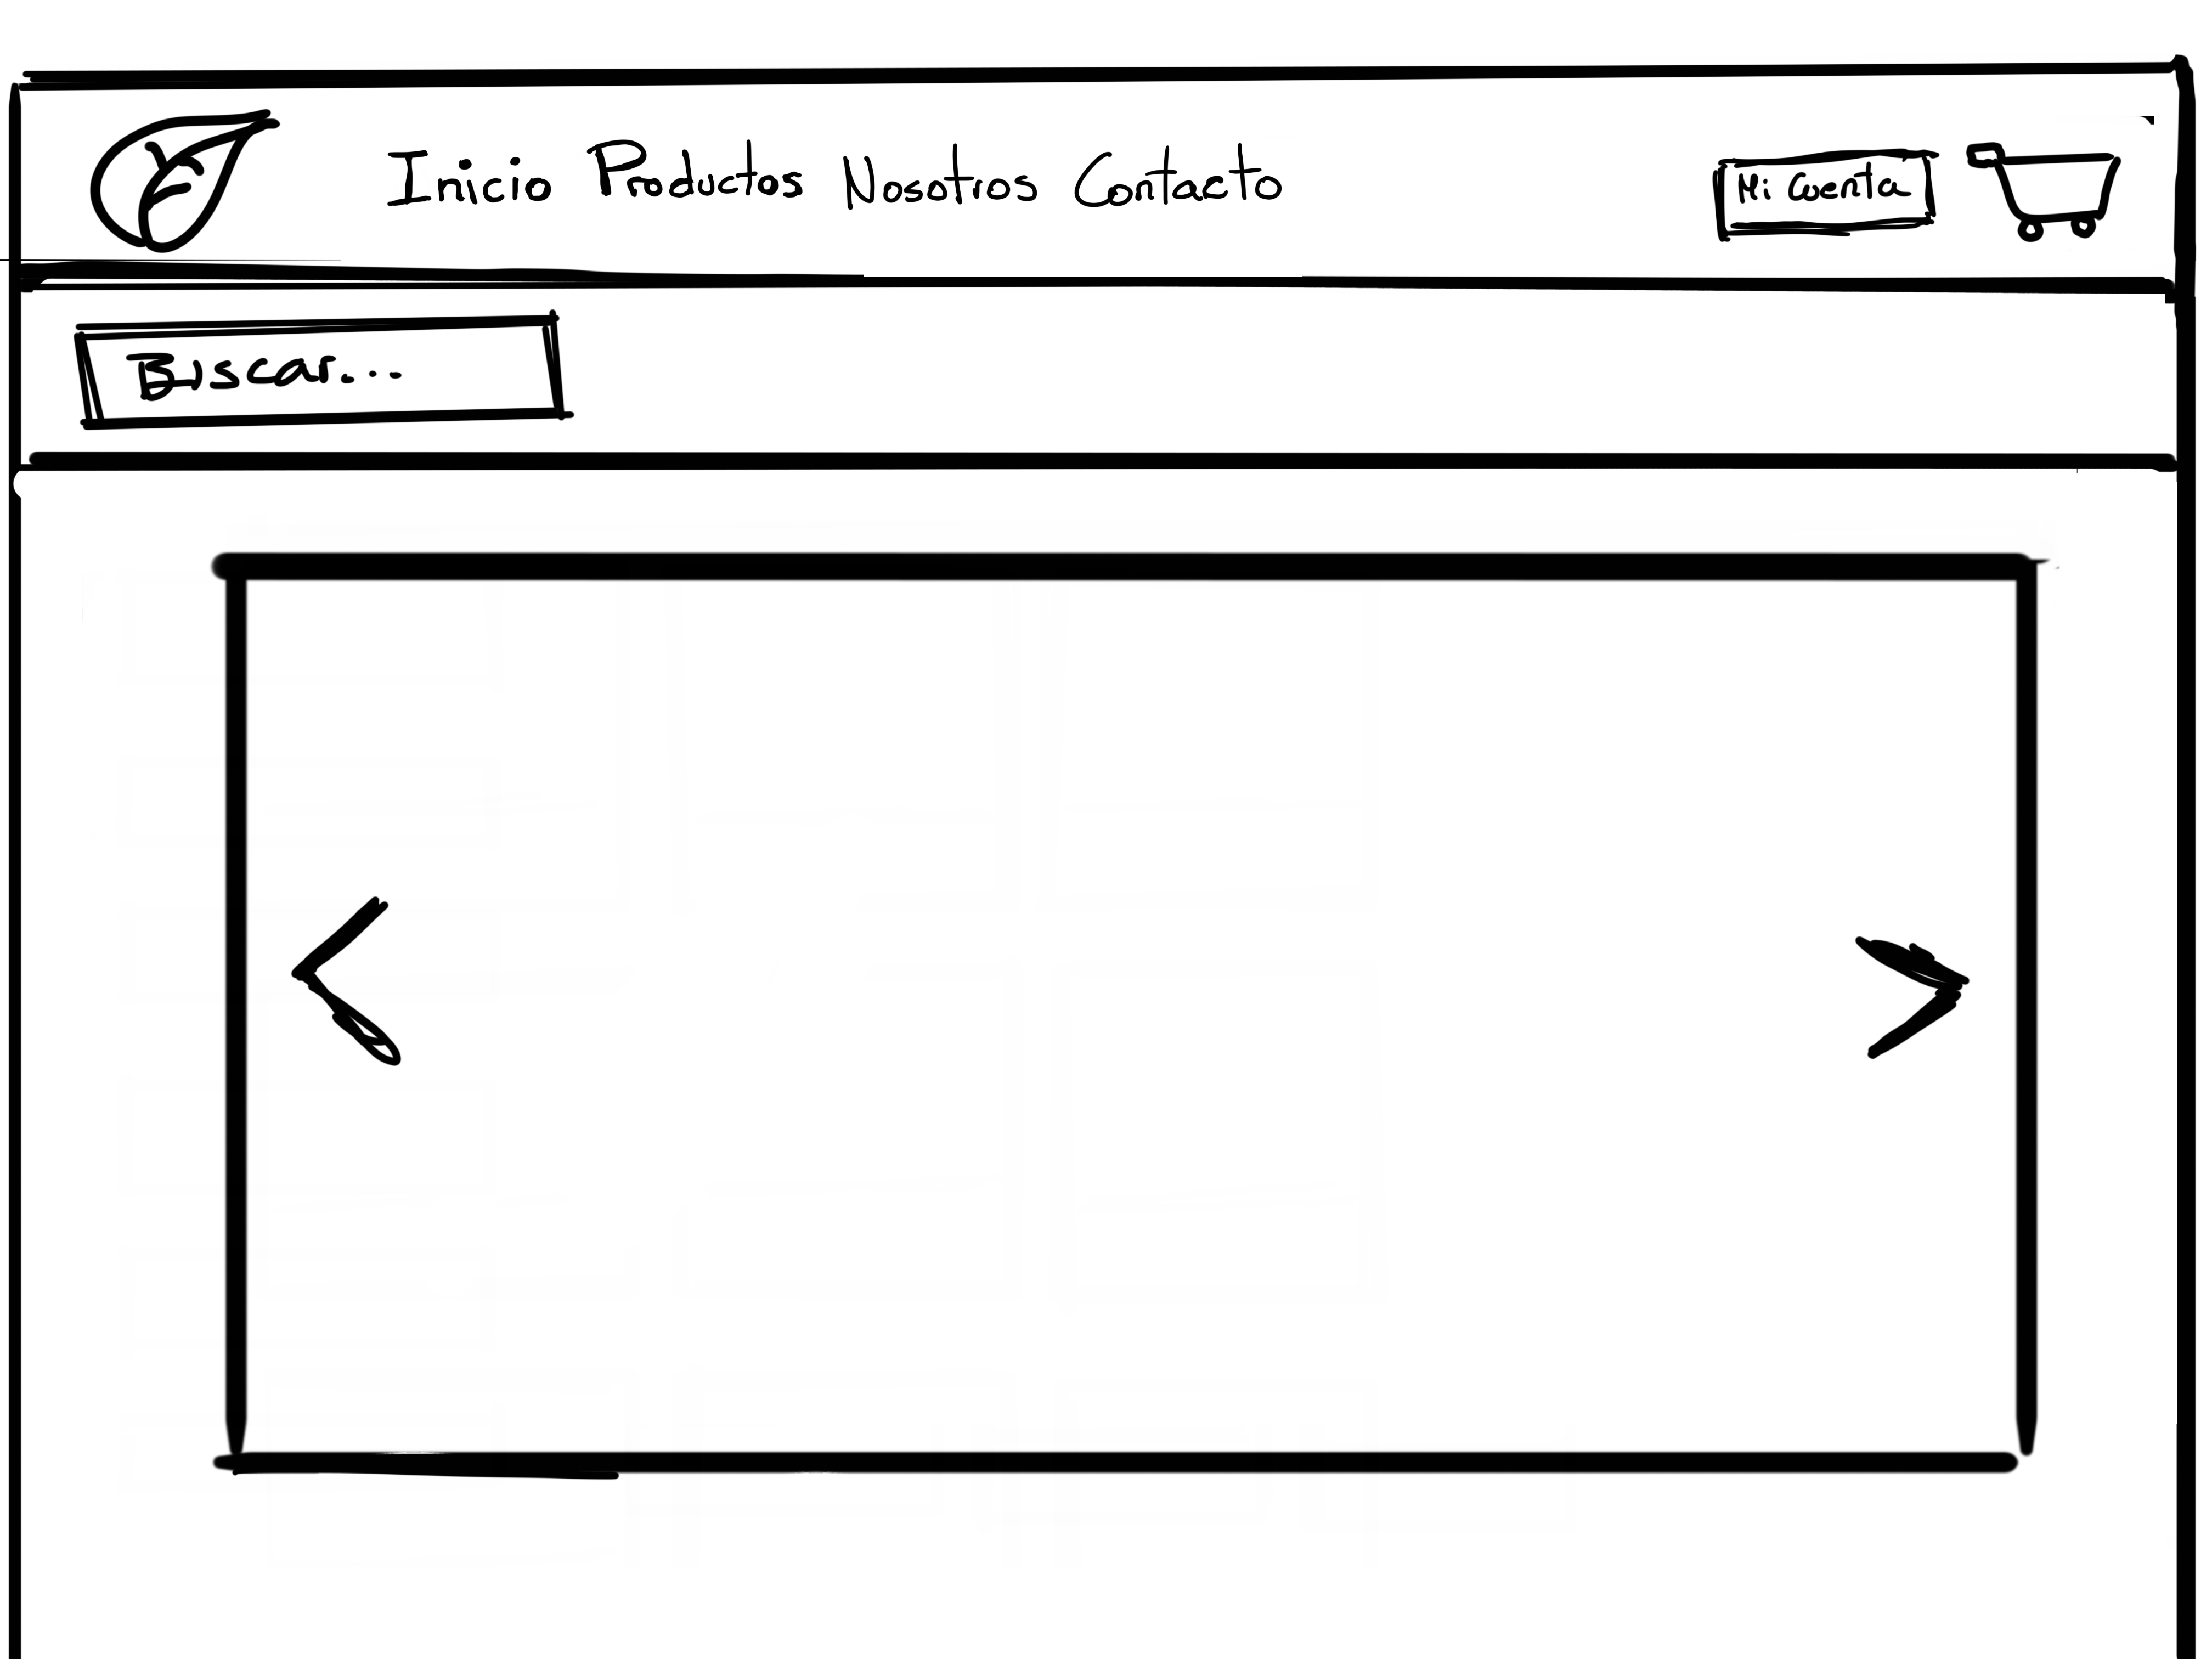 Inicio Productos Nosotros Contacto
Mi Cuenta
Buscar...